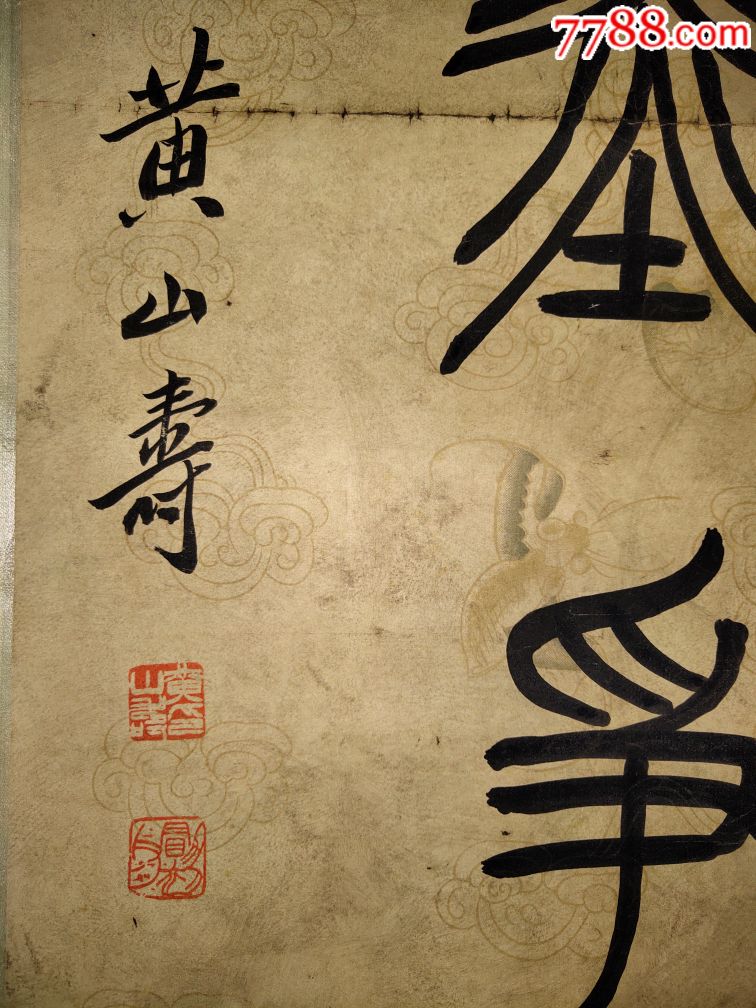 7788.com
爭
黄山壽
黄山壽印